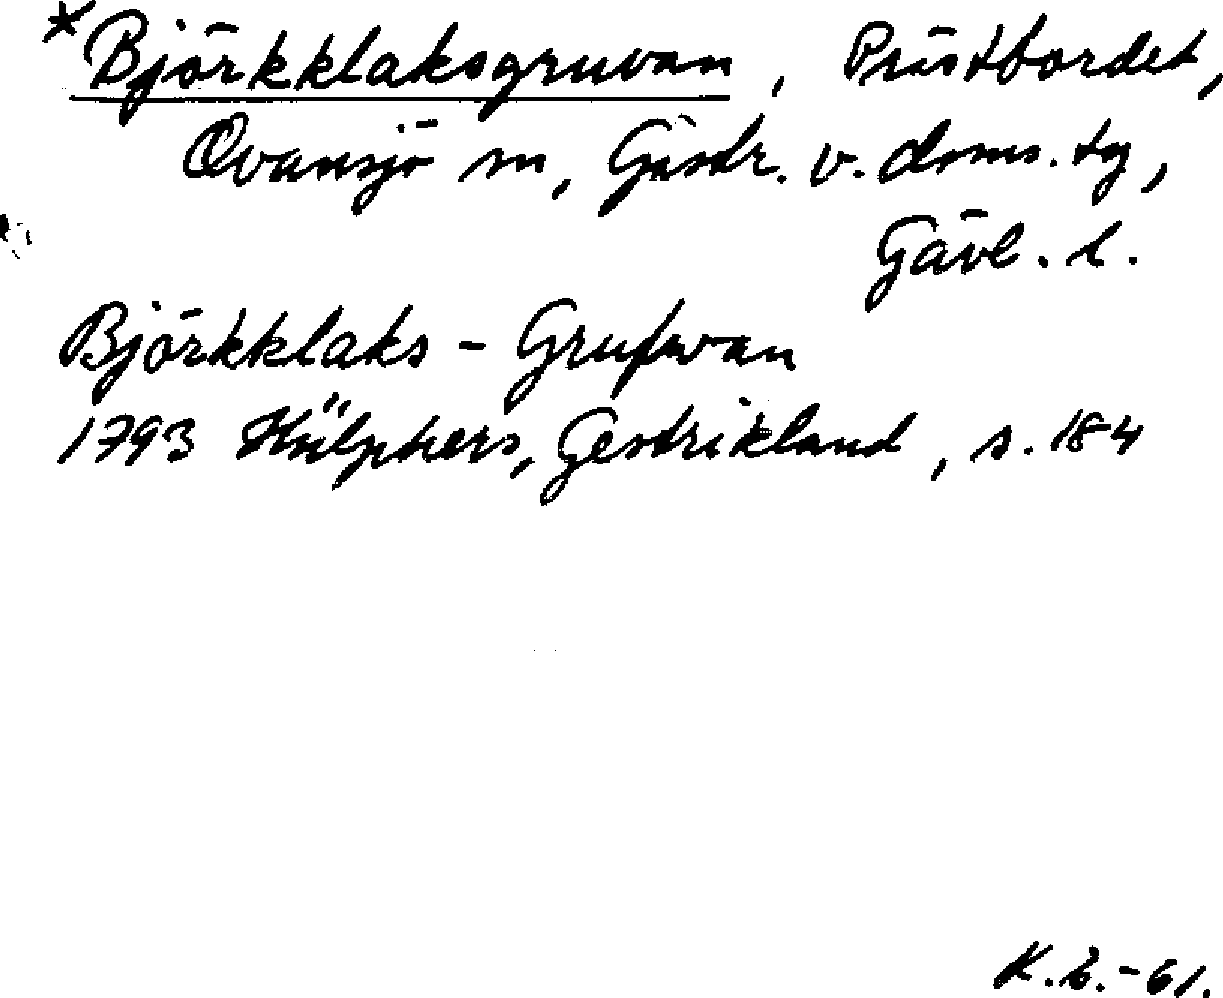 *Björkklaksgruvan, Prästbordet,
Ovansjö sn, Gästr. v. doms. tg,
Gävl. l.
Björkklaks - Grufwan
1793 Hülphers, Gestrikland, s. 184
K.L.-61.